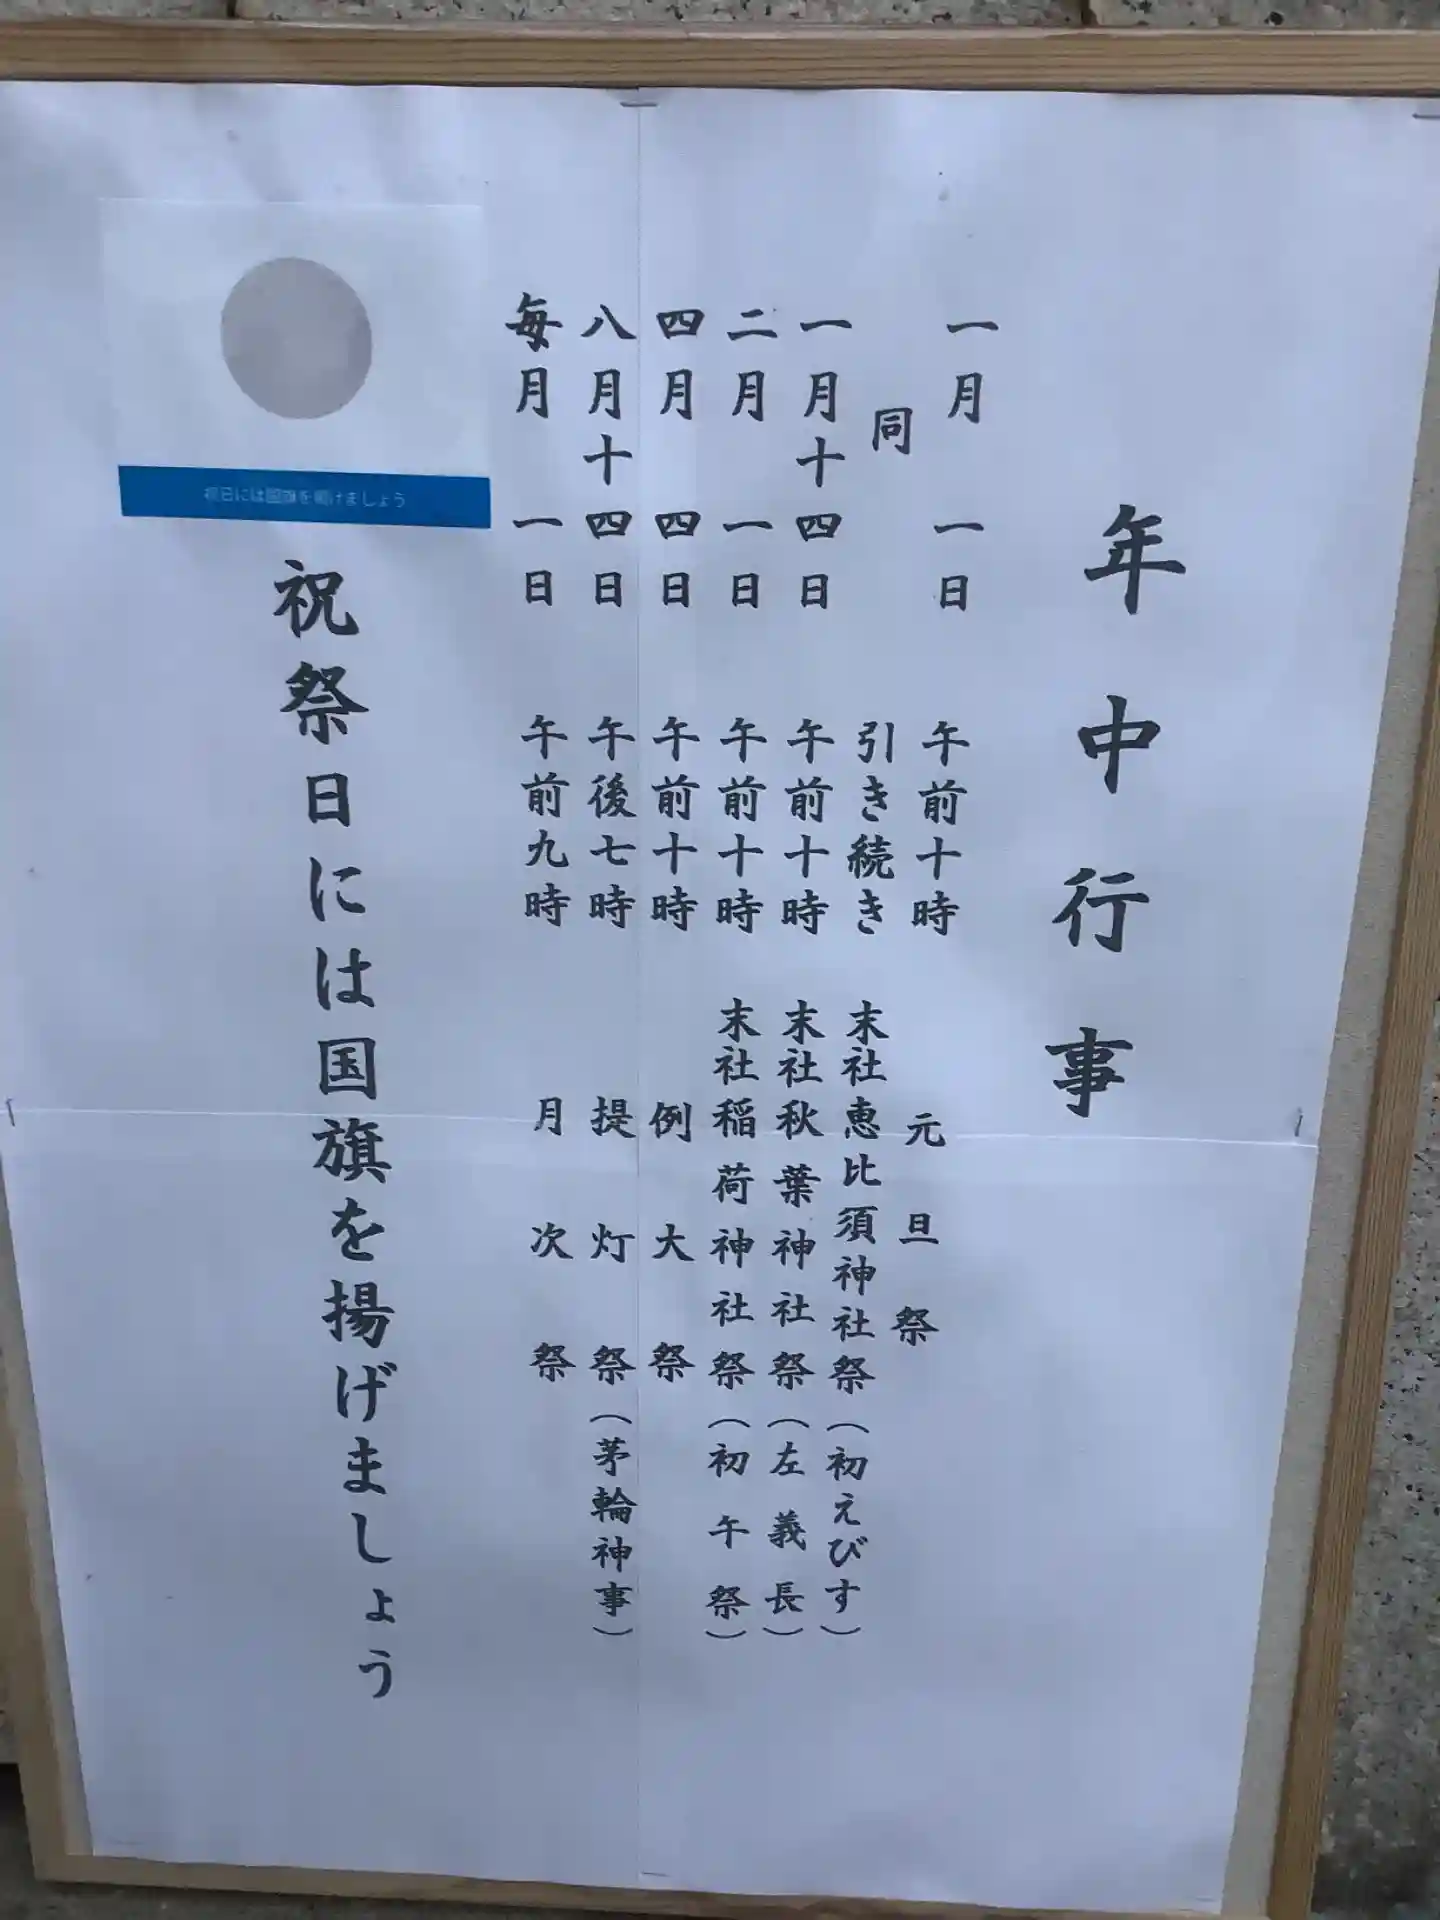 年中行事
一月一日 午前十時 元旦祭
同 引き続き 末社恵比須神社祭(初えびす)
一月十四日 午前十時 末社秋葉神社祭(左義長)
二月一日 午前十時 末社稲荷神社祭(初午祭)
四月四日 午前十時 例大祭
八月十四日 午後七時 提灯祭(茅輪神事)
毎月一日 午前九時 月次祭
祝日には国旗を掲げましょう
祝祭日には国旗を揚げましょう